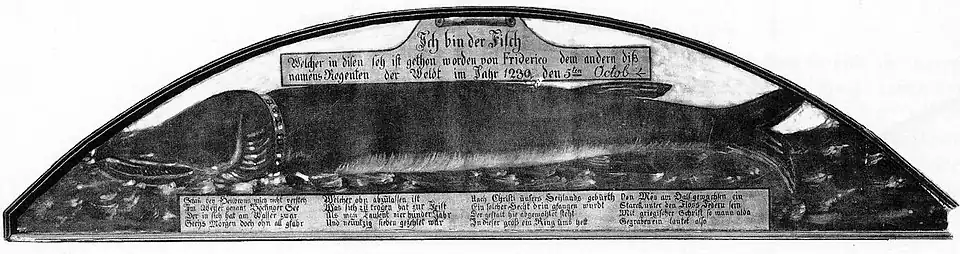 Ich bin der Fisch
Welcher in disen seh ist gethon worden von Friderico dem andern diß
namens Regenten der Weldt im Jahr 1230 den 5ten Octob
Im Weyer genant Böckinger See
Der in sich hat am Wasser zwar
Sechs Morgen doch ohn all gfahr
Welcher ohn abzulassen ist
Was sich zu tragen hat zur Frist
Als man Tausent vier hunder Jahr
Und neuntzig sieben gezehlet war
Nach Christi unsers Heylands geburth
Ein solcher Hecht drin gfangen wurdt
Der gestalt hie abgemahlet steht
In dieser groß ein Ring umb hett
Von am Halß gewachsen ein
Starck unter den Floss federn sein
Mit griegischer Schrifft so wann alda
Gegraben ein lautet also